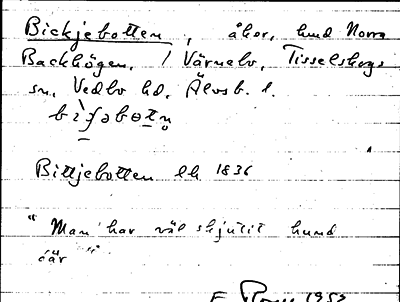 Bickjebotten, åker, hmd Norra
Backhögen, / Värnelv, Tisselskogs
sn, Vedbo hd, Älvsb. l.
Bittjebotten lh 1836
"Man har väl skjutit hund
där"
1952